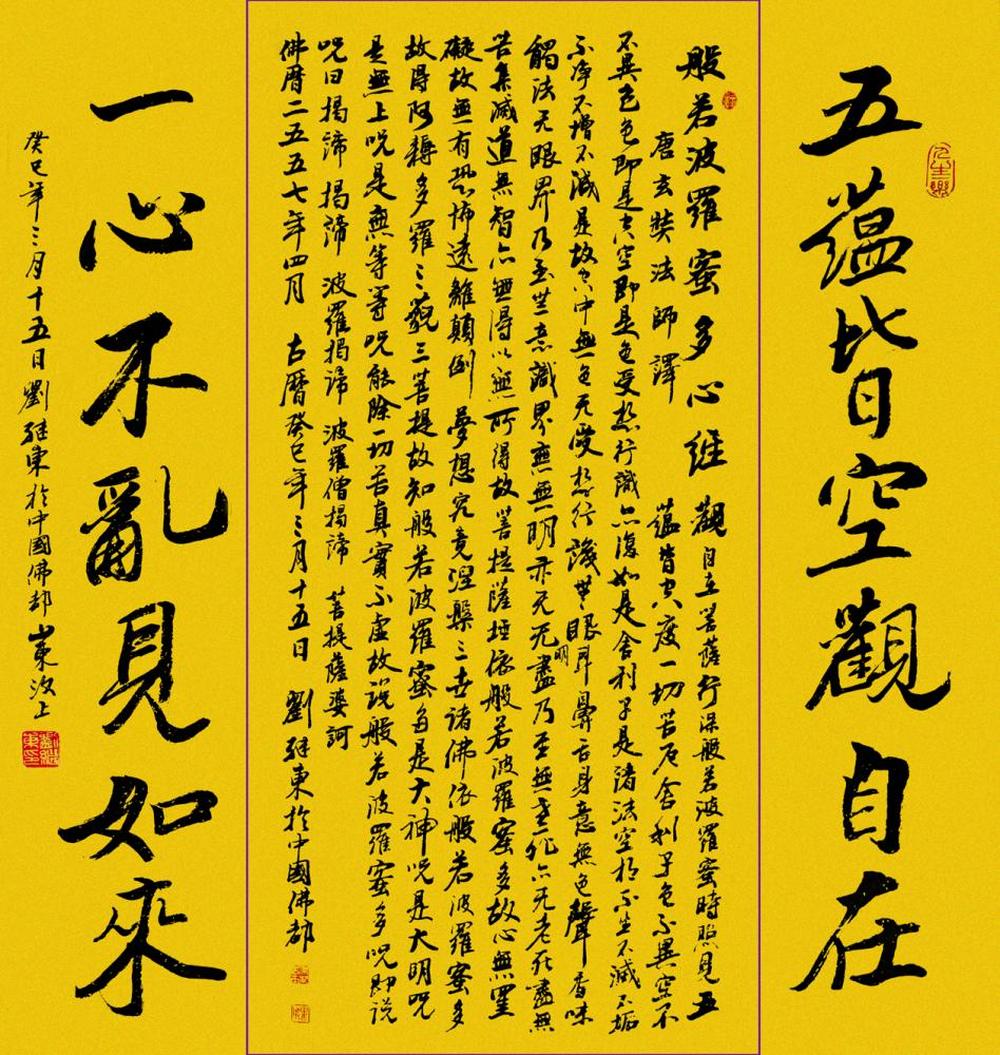 五蘊皆空觀自在
般若波羅蜜多心経 觀自在菩薩行深般若波羅蜜時照見五
唐玄奘法師譯 蘊皆空度一切苦厄舍利子色不異空空
不異色色即是空空即是色受想行識亦復如是舍利子是諸法空相不生不滅不垢
不淨不增不減是故空中無色无受想行識無眼耳鼻舌身意無色聲香味
觸法无眼界乃至無意識界無無明亦无无明盡乃至無老死亦无老死盡無
苦集滅道無智亦無得以無所得故菩提薩埵依般若波羅蜜多故心無罣
礙故無有恐怖遠離顛倒 夢想究竟涅槃三世諸佛依般若波羅蜜多
故得阿耨多羅三藐三菩提故知般若波羅蜜多是大神咒是大明咒
是無上咒是無等等咒能除一切苦真實不虛故説般若波羅蜜多咒即説
咒曰揭諦 揭諦 波羅揭諦 波羅僧揭諦 菩提薩婆訶
佛曆二五五七年四月 古曆癸巳年三月十五日 劉継東於中國佛都
一心不亂見如來
癸巳年三月十五日劉継東於中國佛都山東汶上